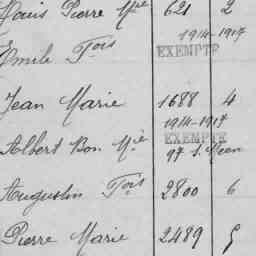 Louis Pierre Mie 621 2
1914-1917
Emile Fois EXEMPTE
Jean Marie 1688 4
1914-1917
EXEMPTE
Albert Bon Mie 97 S. Méen
Augustin Fois 2800 6
Pierre Marie 2489 5